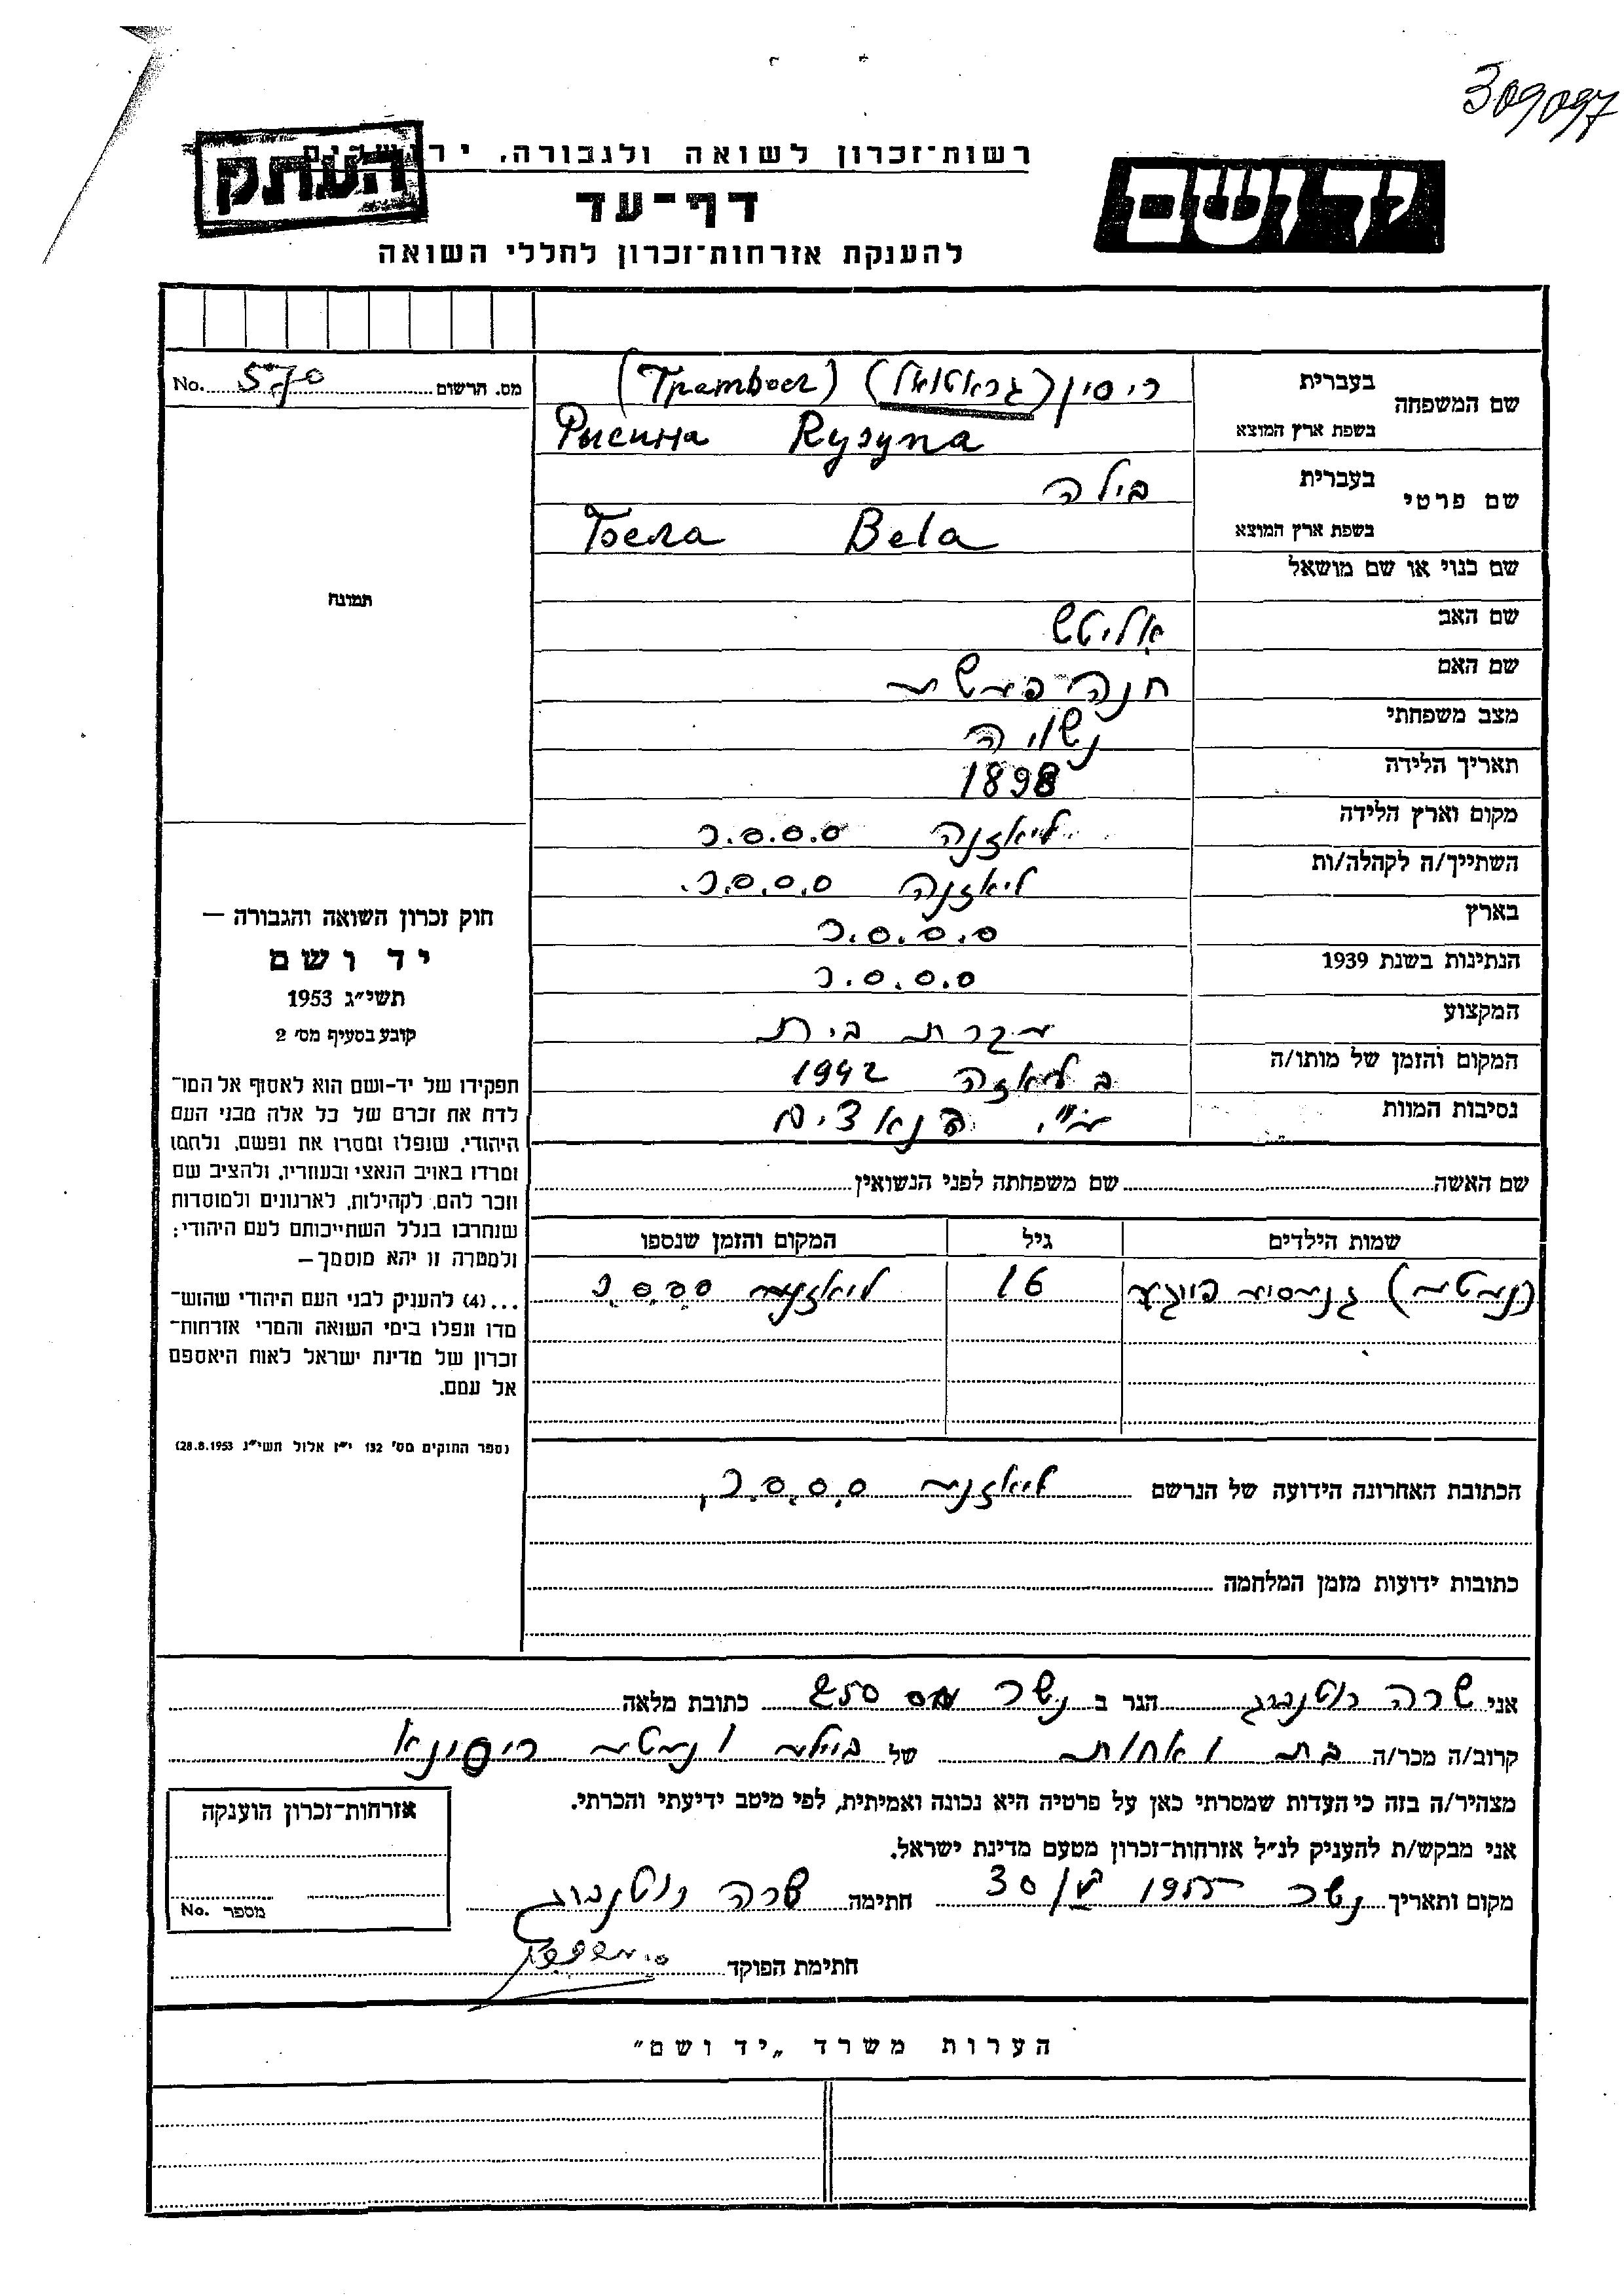 309097
רשות־זכרון לשואה ולגבורה, ירושלים
העתק
יד ושם
דף־עד
להענקת אזרחות־זכרון לחללי השואה
מס. הרשום 570 No.
שם המשפחה
בעברית ריסין (
בשפת ארץ המוצא Рысина Rysyna
שם פרטי
בעברית בילה
בשפת ארץ המוצא Бела Bela
שם כנוי או שם מושאל
שם האב
שם האם חנה
מצב משפחתי נשואה
תאריך הלידה 1898
מקום וארץ הלידה ליאזנה ס.ס.ס.ר
השתייך/ה לקהלה/ות ליאזנה ס.ס.ס.ר.
בארץ ס.ס.ס.ר
הנתינות בשנת 1939 ס.ס.ס.ר
המקצוע עקרת בית
המקום והזמן של מותו/ה 1942
נסיבות המוות ע"י הנאצים
תמונה
חוק זכרון השואה והגבורה —
יד ושם
תשי״ג 1953
קובע בסעיף מס׳ 2
תפקידו של יד-ושם הוא לאסוף אל המו־
לדת את זכרם של כל אלה מבני העם
היהודי, שנפלו ומסרו את נפשם, נלחמו
ומרדו באויב הנאצי ובעוזריו, ולהציב שם
וזכר להם, לקהילות, לארגונים ולמוסדות
שנחרבו בגלל השתייכותם לעם היהודי;
ולמטרה זו יהא מוסמך—
...(4) להענק לבני העם היהודי שהוש־
מדו ונפלו בימי השואה והמרי אזרחות־
זכרון של מדינת ישראל לאות היאספם
אל עמם.
(ספר החוקים מס׳ 132 י״ז אלול תשי״ג 28.8.1953)
שם האשה שם משפחתה לפני הנשואין
שמות הילדים גיל המקום והזמן שנספו
16 ס.ס.ס.ר
הכתובת האחרונה הידועה של הנרשם ס.ס.ס.ר
כתובות ידועות מזמן המלחמה
אני שרה רוטנברג הגר ב נשר 250 כתובת מלאה
קרוב/ה מכר/ה בת ואחות של
מצהיר/ה בזה כי העדות שמסרתי כאן על פרטיה היא נכונה ואמיתית, לפי מיטב ידיעתי והכרתי.
אני מבקש/ת להעניק לנ״ל אזרחות־זכרון מטעם מדינת ישראל.
מקום ותאריך נשר 1955 30 חתימה שרה רוטנברג
חתימת הפוקד
אזרחות־זכרון הוענקה
מספר No.
הערות משרד „יד ושם"